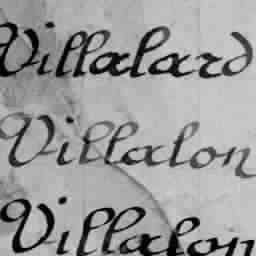 Villalard
Villalon
Villalon